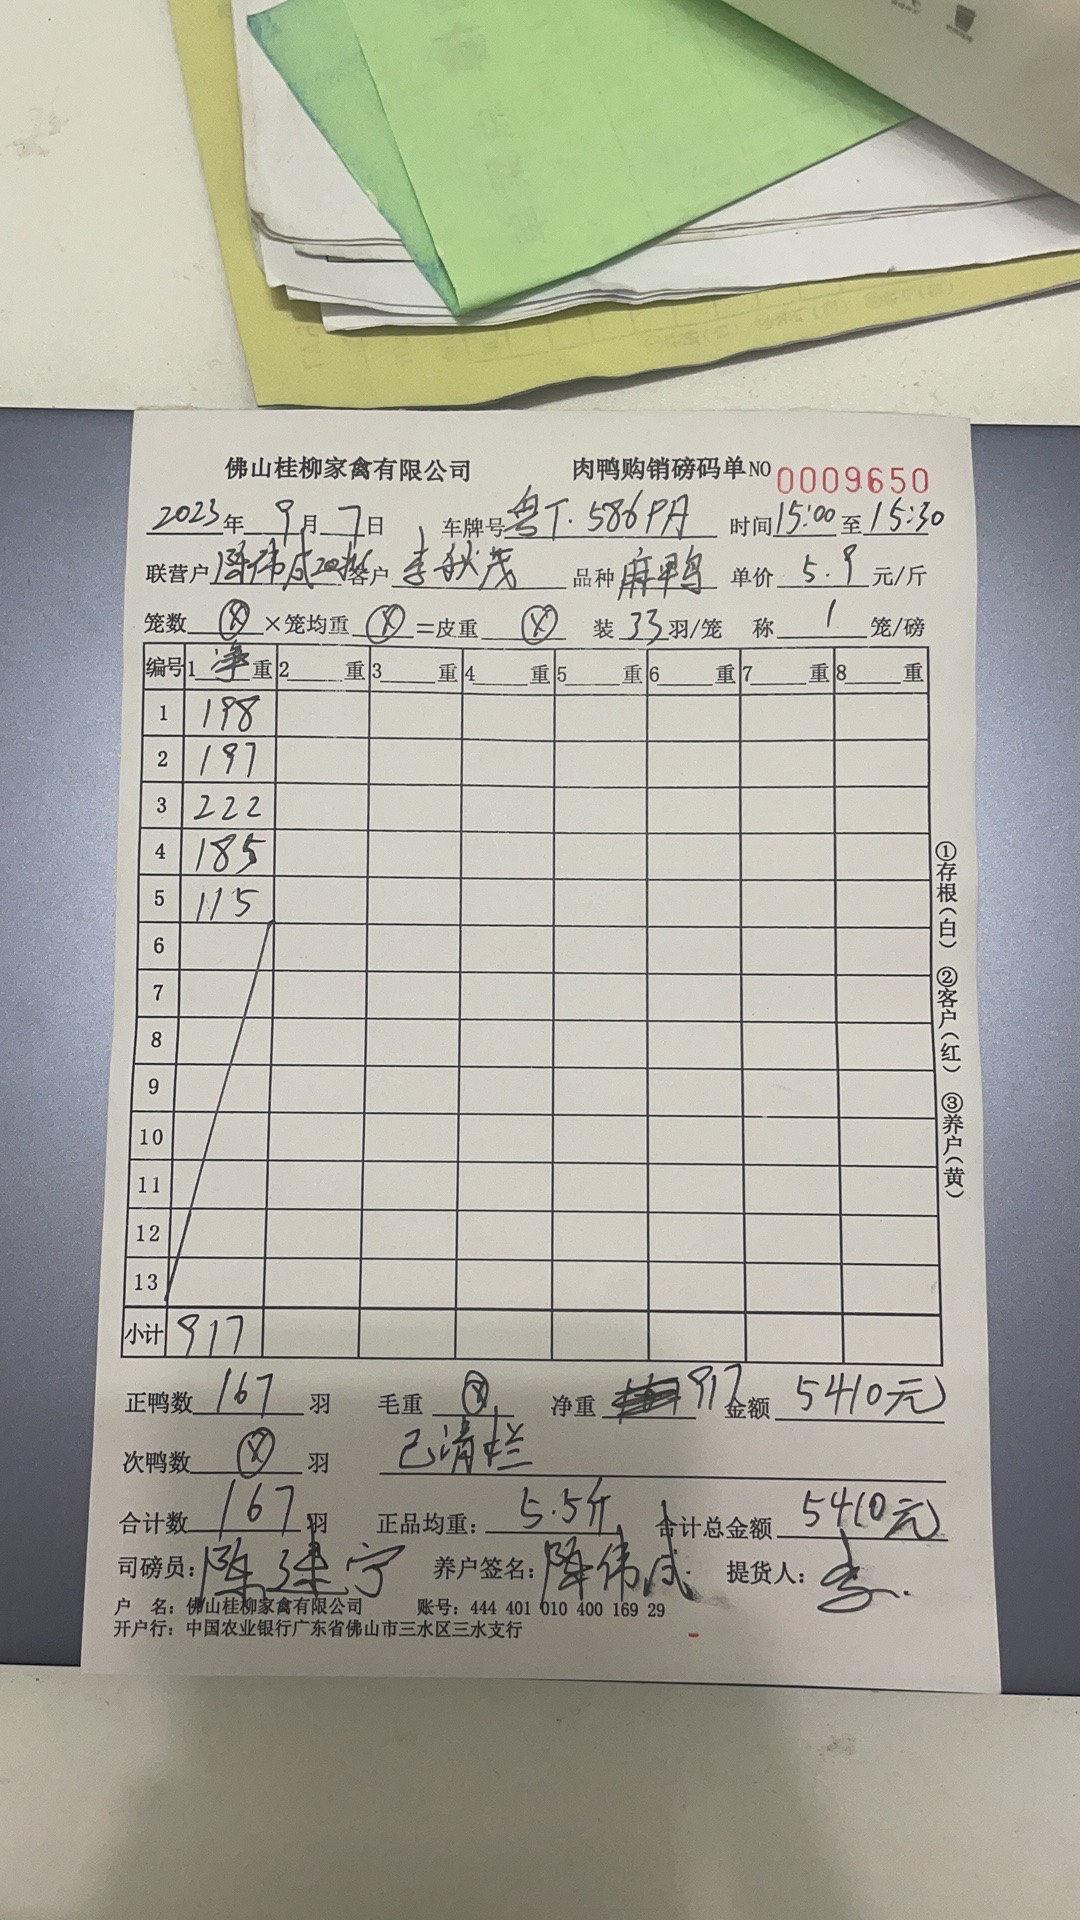 佛山桂柳家禽有限公司 肉鸭购销磅码单NO 0009650
2023年 9月 7日 车牌号 粤T·586PA 时间 15:00 至 15:30
联营户 陈伟成 20批 客户 李秋茂 品种 麻鸭 单价 5.9 元/斤
笼数 ×笼均重 =皮重 装 33 羽/笼 称 1 笼/磅
编号 1 净 重 2 重 3 重 4 重 5 重 6 重 7 重 8 重
1 198
2 197
3 222
4 185
5 115
6
7
8
9
10
11
12
13
小计 917
正鸭数 167 羽 毛重 净重 917 金额 5410元
次鸭数 羽 已清栏
合计数 167 羽 正品均重: 5.5斤 合计总金额 5410元
司磅员: 陈 宁 养户签名: 陈伟成 提货人: 李
户 名: 佛山桂柳家禽有限公司 账号: 444 401 010 400 169 29
开户行: 中国农业银行广东省佛山市三水区三水支行
①存根(白) ②客户(红) ③养户(黄)